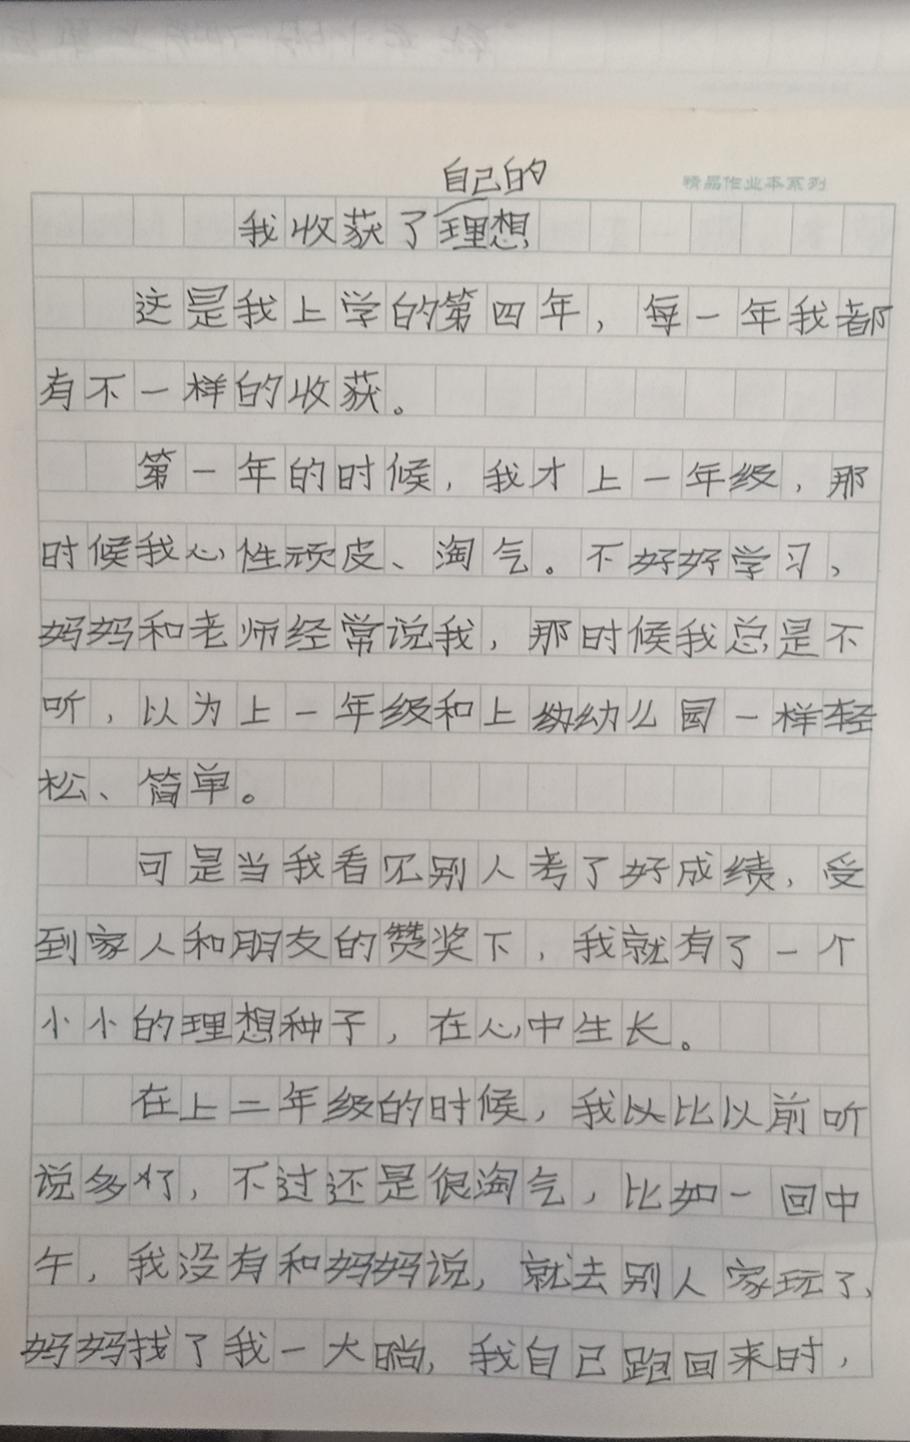 精品作业本系列
自己的
我收获了理想
这是我上学的第四年，每一年我都
有不一样的收获。
第一年的时候，我才上一年级，那
时候我心性顽皮、淘气。不好好学习，
妈妈和老师经常说我，那时候我总是不
听，以为上一年级和上幼儿园一样轻
松、简单。
可是当我看见别人考了好成绩，受
到家人和朋友的赞奖下，我就有了一个
小小的理想种子，在心中生长。
在上二年级的时候，我比以前听
说多了，不过还是很淘气，比如一回中
午，我没有和妈妈说，就去别人家玩了，
妈妈找了我一大晌，我自己跑回来时，